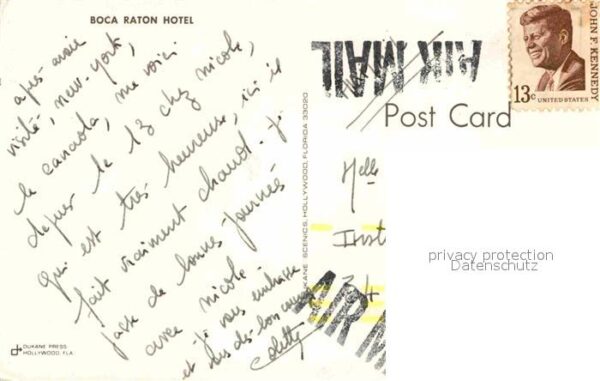 BOCA RATON HOTEL
après avoir
visité, new-york,
le canada, me voici
depuis le 13 chez nicole,
qui est très heureuse, ici il
fait vraiment chaud - je
passe de bonnes journées
avec nicole
et je vous embrasse
et dis bon courage
Colette
DUKANE PRESS
HOLLYWOOD, FLA
DUKANE SCENICS, HOLLYWOOD, FLORIDA 33020
AIR MAIL
Post Card
JOHN F KENNEDY
13c
UNITED STATES
Melle
Inst
34
AIR M
privacy protection
Datenschutz